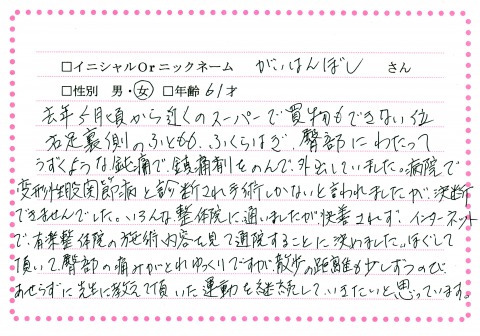 □イニシャルOrニックネーム がいはんぼし さん
□性別 男・女 □年齢 61才
去年5月頃から近くのスーパーで買物もできない位
右足裏側のふともも、ふくらはぎ、臀部にわたって
うずくような鈍痛で、鎮痛剤をのんで、外出していました。病院で
変形性股関節病と診断され手術しかないと言われましたが、決断
できませんでした。いろんな整体院に通いましたが改善されず、インターネット
で、有楽整体院の施術内容を見て通院することに決めました。ほぐして
頂いて、臀部の痛みがとれゆっくりですが散歩の距離も少しずつのび
あせらずに先生に教えて頂いた運動を継続していきたいと思っています。